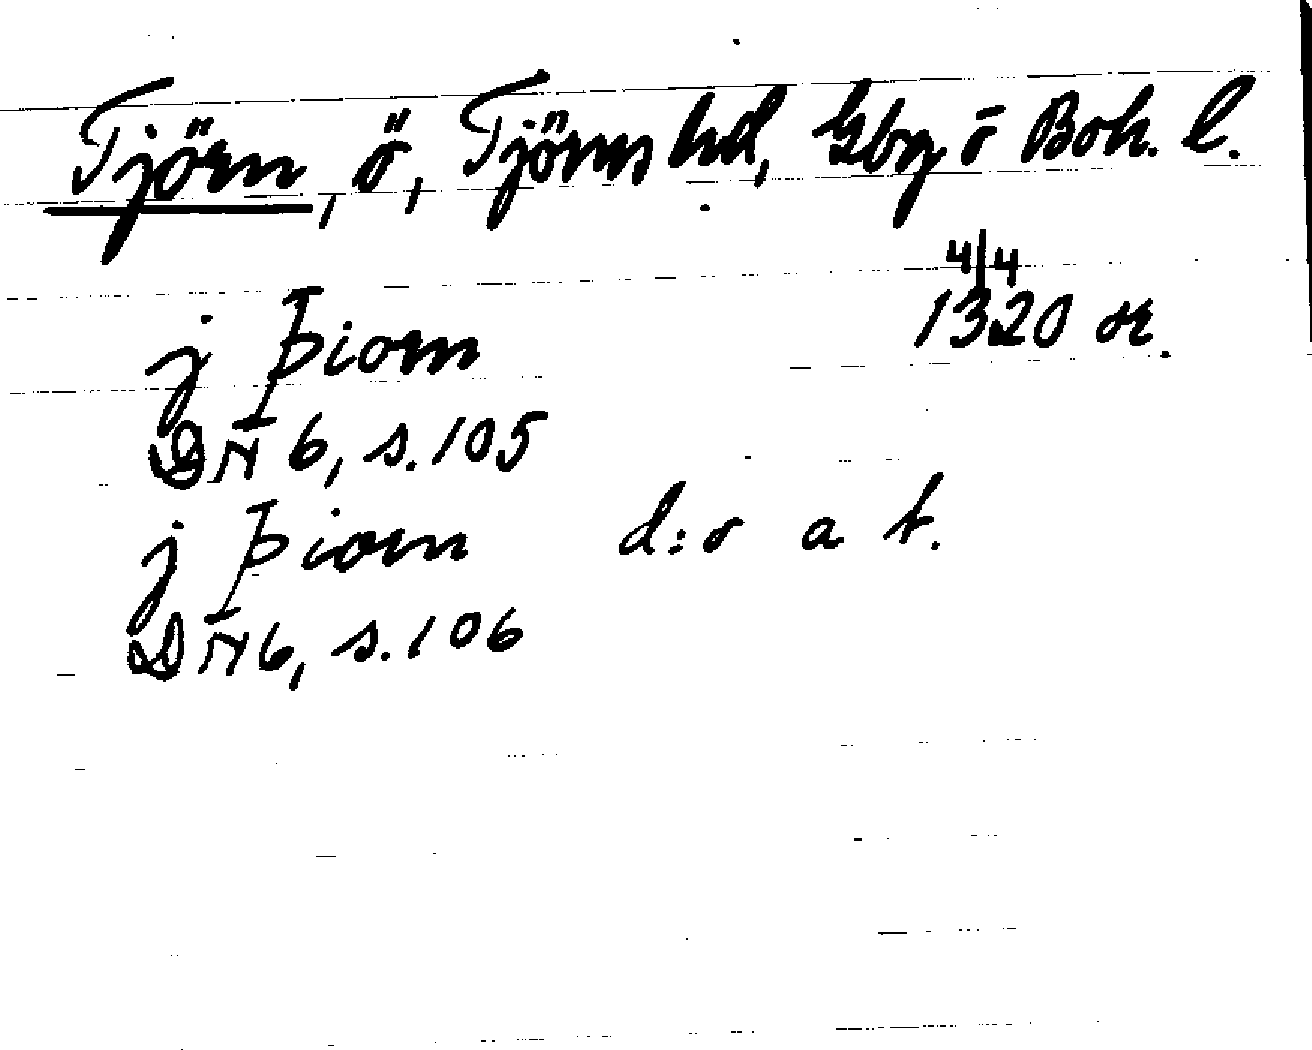 Tjörn, ö, Tjörns hd, Gbg o Boh. l.
4/4
j þiorn 1320 or.
DN 6, s. 105
j þiorn d:o a t.
DN 6, s. 106